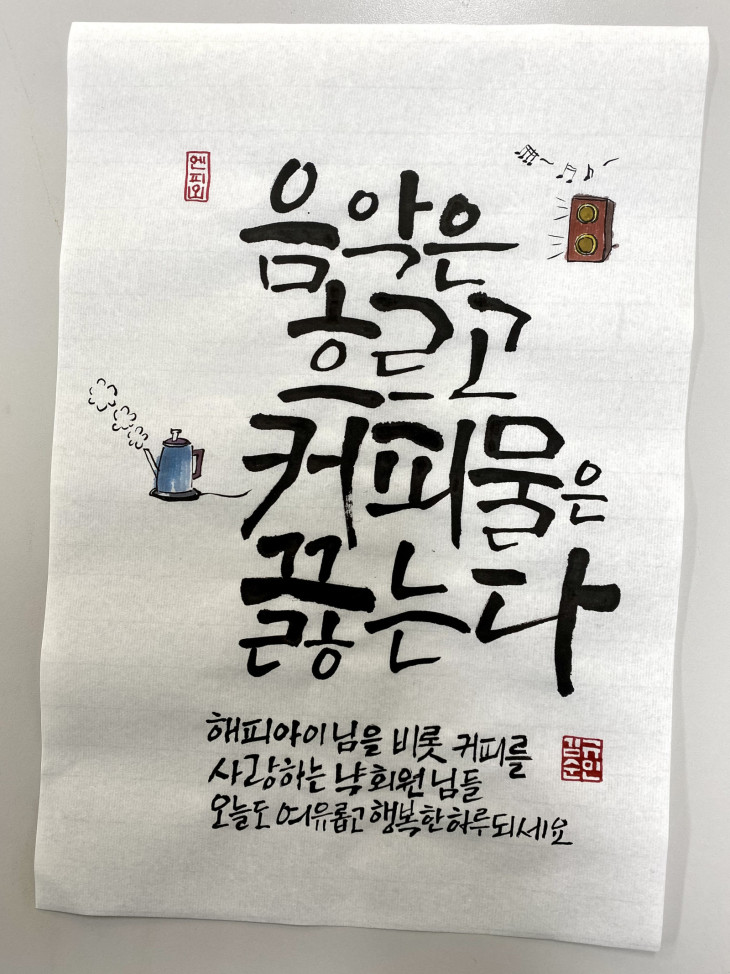 엔피오
음악은
흐르고
커피물은
끓는다
해피아이님을 비롯 커피를
사랑하는 냑회원님들
오늘도 여유롭고 행복한하루되세요